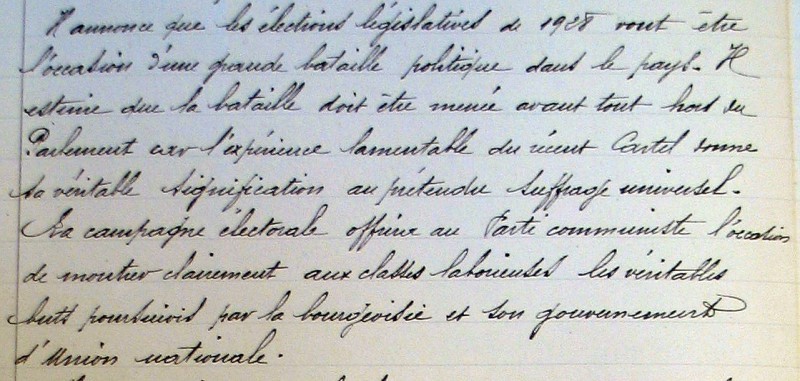 Il annonce que les élections législatives de 1928 vont être
l'occasion d'une grande bataille politique dans le pays. Il
estime que la bataille doit être menée avant tout hors du
Parlement car l'expérience lamentable du récent Cartel donne
sa véritable signification au prétendu suffrage universel.
La campagne électorale offrira au Parti communiste l'occasion
de montrer clairement aux classes laborieuses les véritables
buts poursuivis par la bourgeoisie et son gouvernement
d'Union nationale.